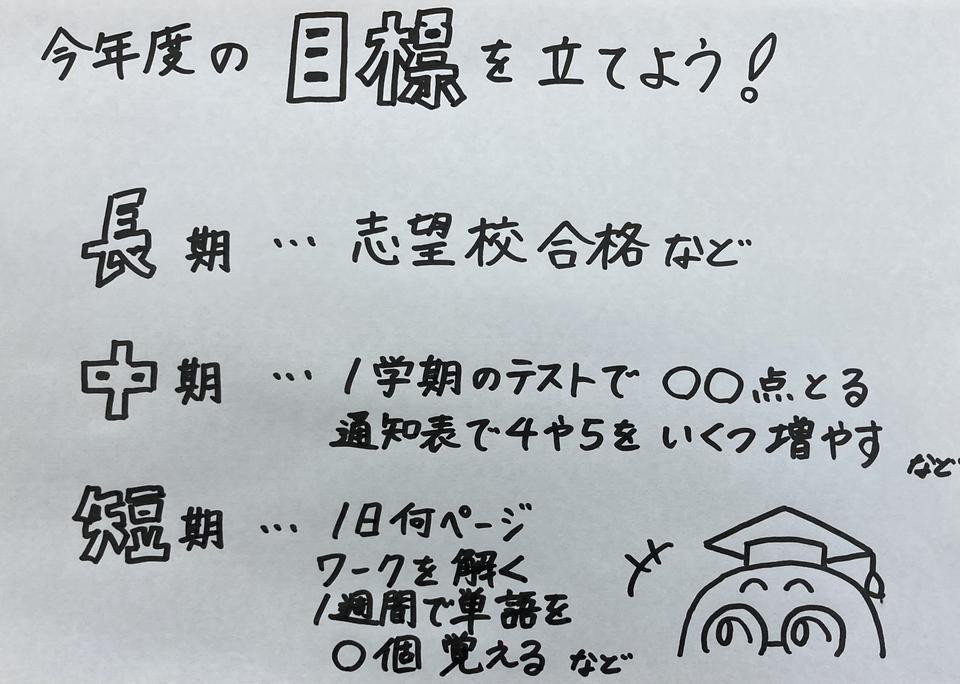 今年度の目標を立てよう!
長期…志望校合格など
中期…1学期のテストで○○点とる
通知表で4や5をいくつ増やす
など
短期…1日何ページ
ワークを解く
1週間で単語を
○個覚えるなど